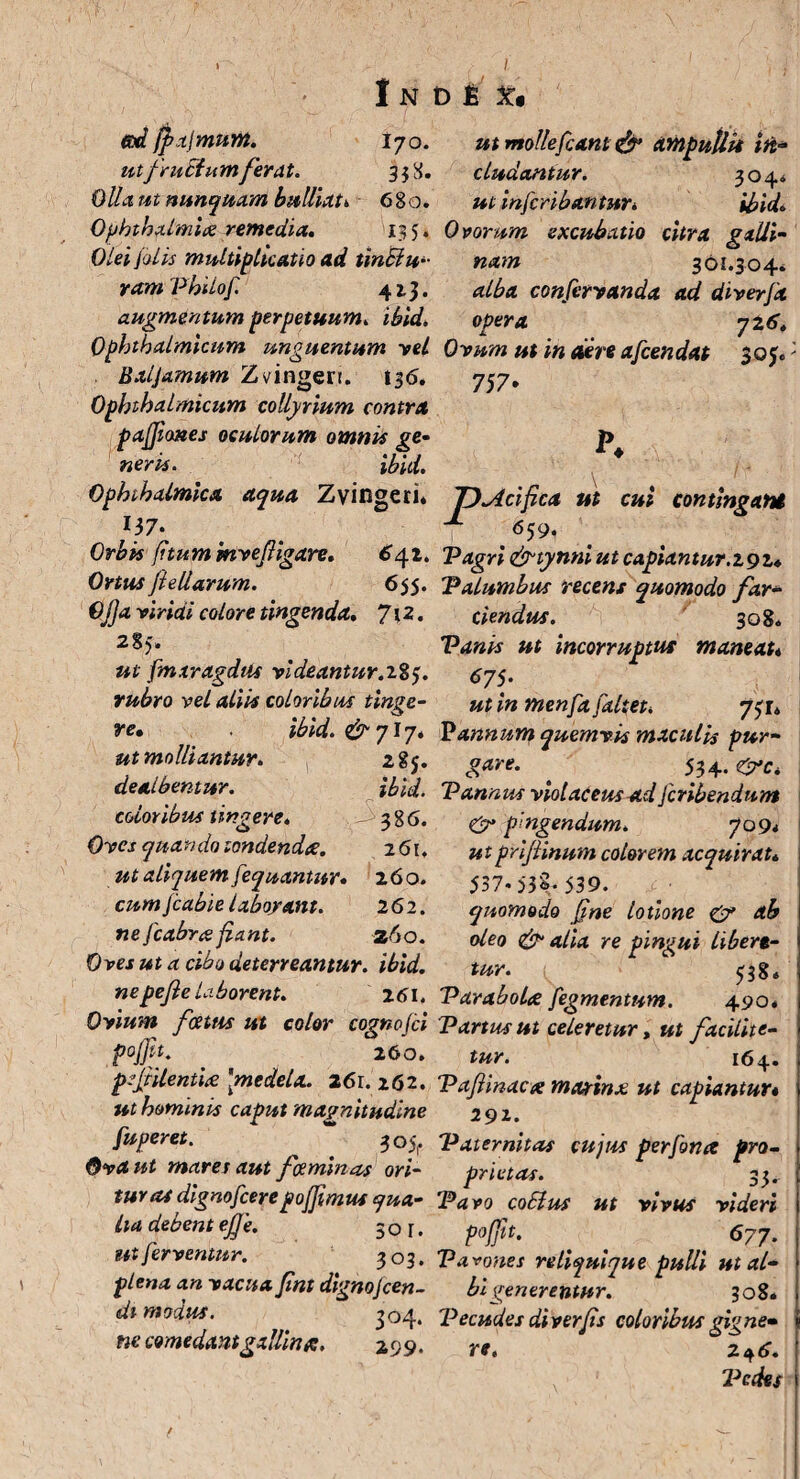 INDEX.
ad spasmum. 170.
ut fructum ferat. 338.
Olla ut nunquam bulliat. 680.
Ophthalmiæ remedia. 135.
Olei solis multiplicatio ad tinctu-
ram Philos. 423.
augmentum perpetuum. ibid.
Ophthalmicum unguentum vel
Balsamum Zvingeri. 136.
Ophthalmicum collyrium contra
passiones oculorum omnis ge-
neris. ibid.
Ophthalmica aqua Zvingeri.
137.
Orbis situm investigare. 642.
Ortus stellarum. 655.
Ossa viridi colore tingenda. 712.
285.
ut smaragdus videantur. 285.
rubro vel aliis coloribus tinge-
re. ibid. & 717.
ut molliantur. 285.
dealbentur. ibid.
coloribus tingere. 386.
Oves quando tondendæ. 261.
ut aliquem sequantur. 260.
cum scabie laborant. 262.
ne scabræ fiant. 260.
Oves ut a cibo deterreantur. ibid.
ne peste laborent. 261.
Ovium fœtus ut color cognosci
possit. 260.
pestilentiæ medela. 261. 262.
ut hominis caput magnitudine
superet. 305.
Ova ut mares aut fœminas ori-
turas dignoscere possimus qua-
lia debent esse. 301.
ut serventur. 303.
plena an vacua sint dignoscen-
di modus. 304.
ne comedant gallinæ. 299.
ut mollescant & ampullis in-
cludantur. 304.
ut inscribantur. ibid.
Ovorum excubatio citra galli-
nam 301.304.
alba conservanda ad diversa
opera 726.
Ovum ut in aëre ascendat 305.
757.
P.
PAcifica ut cui contingant
659.
Pagri & synni ut capiantur. 292.
Palumbus recens quomodo far-
ciendus. 308.
Panis ut incorruptus maneat.
675.
ut in mensa saltet. 751.
Pannum quemvis maculis pur-
gare. 534. &c.
Pannus violaceus ad scribendum
& pingendum. 709.
ut pristinum colorem acquirat.
537. 538. 539.
quomodo sine lotione & ab
oleo & alia re pingui libere-
tur. 538.
Parabolæ segmentum. 490.
Partus ut celeretur, ut facilite-
tur. 164.
Pastinacæ marinæ ut capiantur.
292.
Paternitas cujus personæ pro-
prietas. 33.
Pavo coctus ut vivus videri
possit. 677.
Pavones reliquique pulli ut al-
bi generentur. 308.
Pecudes diversis coloribus gigne-
re. 246.
Pedes